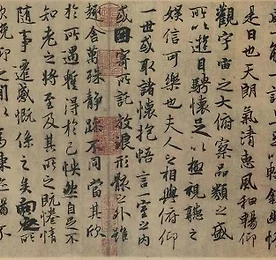 是日也天朗氣清惠風和暢仰
觀宇宙之大俯察品類之盛
所以遊目騁懷足以極視聽之
娛信可樂也夫人之相與俯仰
一世或取諸懷抱悟言一室之內
或因寄所託放浪形骸之外雖
趣舍萬殊靜躁不同當其欣
於所遇暫得於己怏然自足不
知老之將至及其所之既惓情
隨事遷感慨係之矣向之所
欣俛仰之間以為陳迹猶不